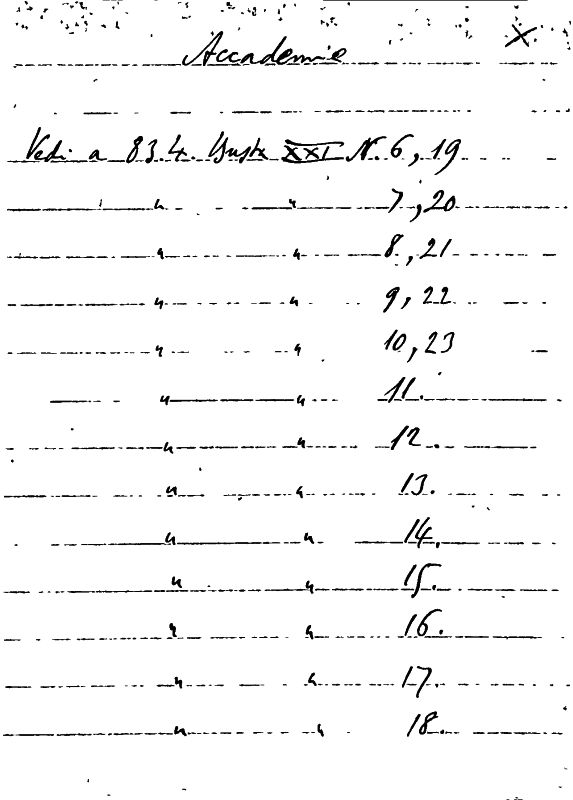 Accademie X
Vedi a 83.4. Busta XXI N. 6, 19
" " 7, 20
" " 8, 21
" " 9, 22
" " 10, 23
" " 11.
" " 12.
" " 13.
" " 14.
" " 15.
" " 16.
" " 17.
" " 18.